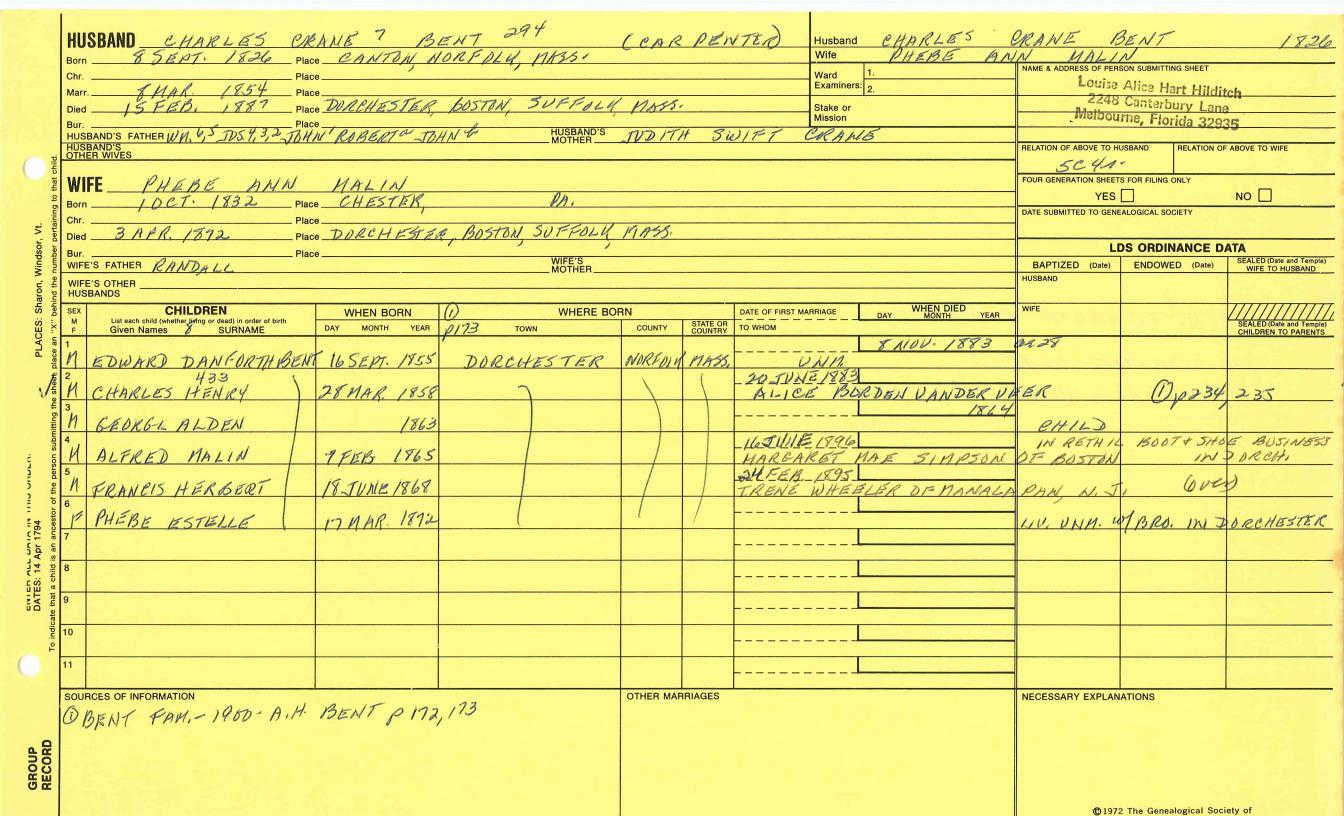 HUSBAND CHARLES CRANE 7 BENT 294 (CARPENTER)
Born 8 SEPT. 1826 Place CANTON, NORFOLK, MASS.
Chr. Place
Marr. 8 MAR. 1854 Place
Died 15 FEB. 1887 Place DORCHESTER, BOSTON, SUFFOLK, MASS.
Bur. Place
HUSBAND'S FATHER WM. 6,5 JOS 4,3,2 JOHN 1 ROBERT a JOHN b HUSBAND'S MOTHER JUDITH SWIFT CRANE
HUSBAND'S OTHER WIVES
Husband CHARLES CRANE BENT 1826
Wife PHEBE ANN MALIN
Ward Examiners: 1.
2.
Stake or Mission
NAME & ADDRESS OF PERSON SUBMITTING SHEET
Louise Alice Hart Hilditch
2248 Canterbury Lane
Melbourne, Florida 32935
RELATION OF ABOVE TO HUSBAND RELATION OF ABOVE TO WIFE
5C4R
FOUR GENERATION SHEETS FOR FILING ONLY
YES NO
DATE SUBMITTED TO GENEALOGICAL SOCIETY
WIFE PHEBE ANN MALIN
Born 1 OCT. 1832 Place CHESTER, PA.
Chr. Place
Died 3 APR. 1892 Place DORCHESTER, BOSTON, SUFFOLK, MASS.
Bur. Place
WIFE'S FATHER RANDALL WIFE'S MOTHER
WIFE'S OTHER HUSBANDS
LDS ORDINANCE DATA
BAPTIZED (Date) ENDOWED (Date) SEALED (Date and Temple) WIFE TO HUSBAND
HUSBAND
WIFE
SEALED (Date and Temple) CHILDREN TO PARENTS
SEX M F CHILDREN WHEN BORN ① WHERE BORN DATE OF FIRST MARRIAGE WHEN DIED
List each child (whether living or dead) in order of birth
Given Names 8 SURNAME DAY MONTH YEAR p173 TOWN COUNTY STATE OR COUNTRY TO WHOM DAY MONTH YEAR
1 8 NOV. 1883 ae 28
M EDWARD DANFORTH BENT 16 SEPT. 1855 DORCHESTER NORFOLK MASS. UNM.
2 433 20 JUNE 1883
M CHARLES HENRY 28 MAR. 1858 ALICE BORDEN VANDER VEER ① p234, 235
3 1864
M GEORGE ALDEN 1863 CHILD
4 16 JUNE 1896 IN RETAIL BOOT & SHOE BUSINESS
M ALFRED MALIN 9 FEB 1865 MARGARET MAE SIMPSON OF BOSTON IN DORCH.
5 24 FEB. 1895
M FRANCIS HERBERT 18 JUNE 1868 IRENE WHEELER OF MANALAPAN, N.J. (over)
6
F PHEBE ESTELLE 17 MAR. 1872 LIV. UNM. w/ BRO. IN DORCHESTER
7
8
9
10
11
SOURCES OF INFORMATION OTHER MARRIAGES NECESSARY EXPLANATIONS
① BENT FAM. - 1900 - A.H. BENT p 172, 173
©1972 The Genealogical Society of
PLACES: Sharon, Windsor, Vt.
DATES: 14 Apr 1794
To indicate that a child is an ancestor of the person submitting the sheet, place an "X" behind the number pertaining to that child.
GROUP RECORD